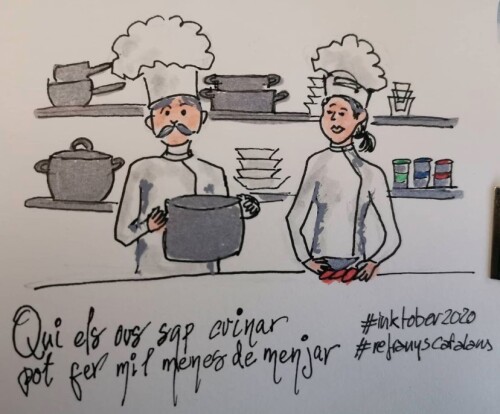 Qui els ous sap cuinar
pot fer mil menes de menjar
#inktober2020
#refranyscatalans